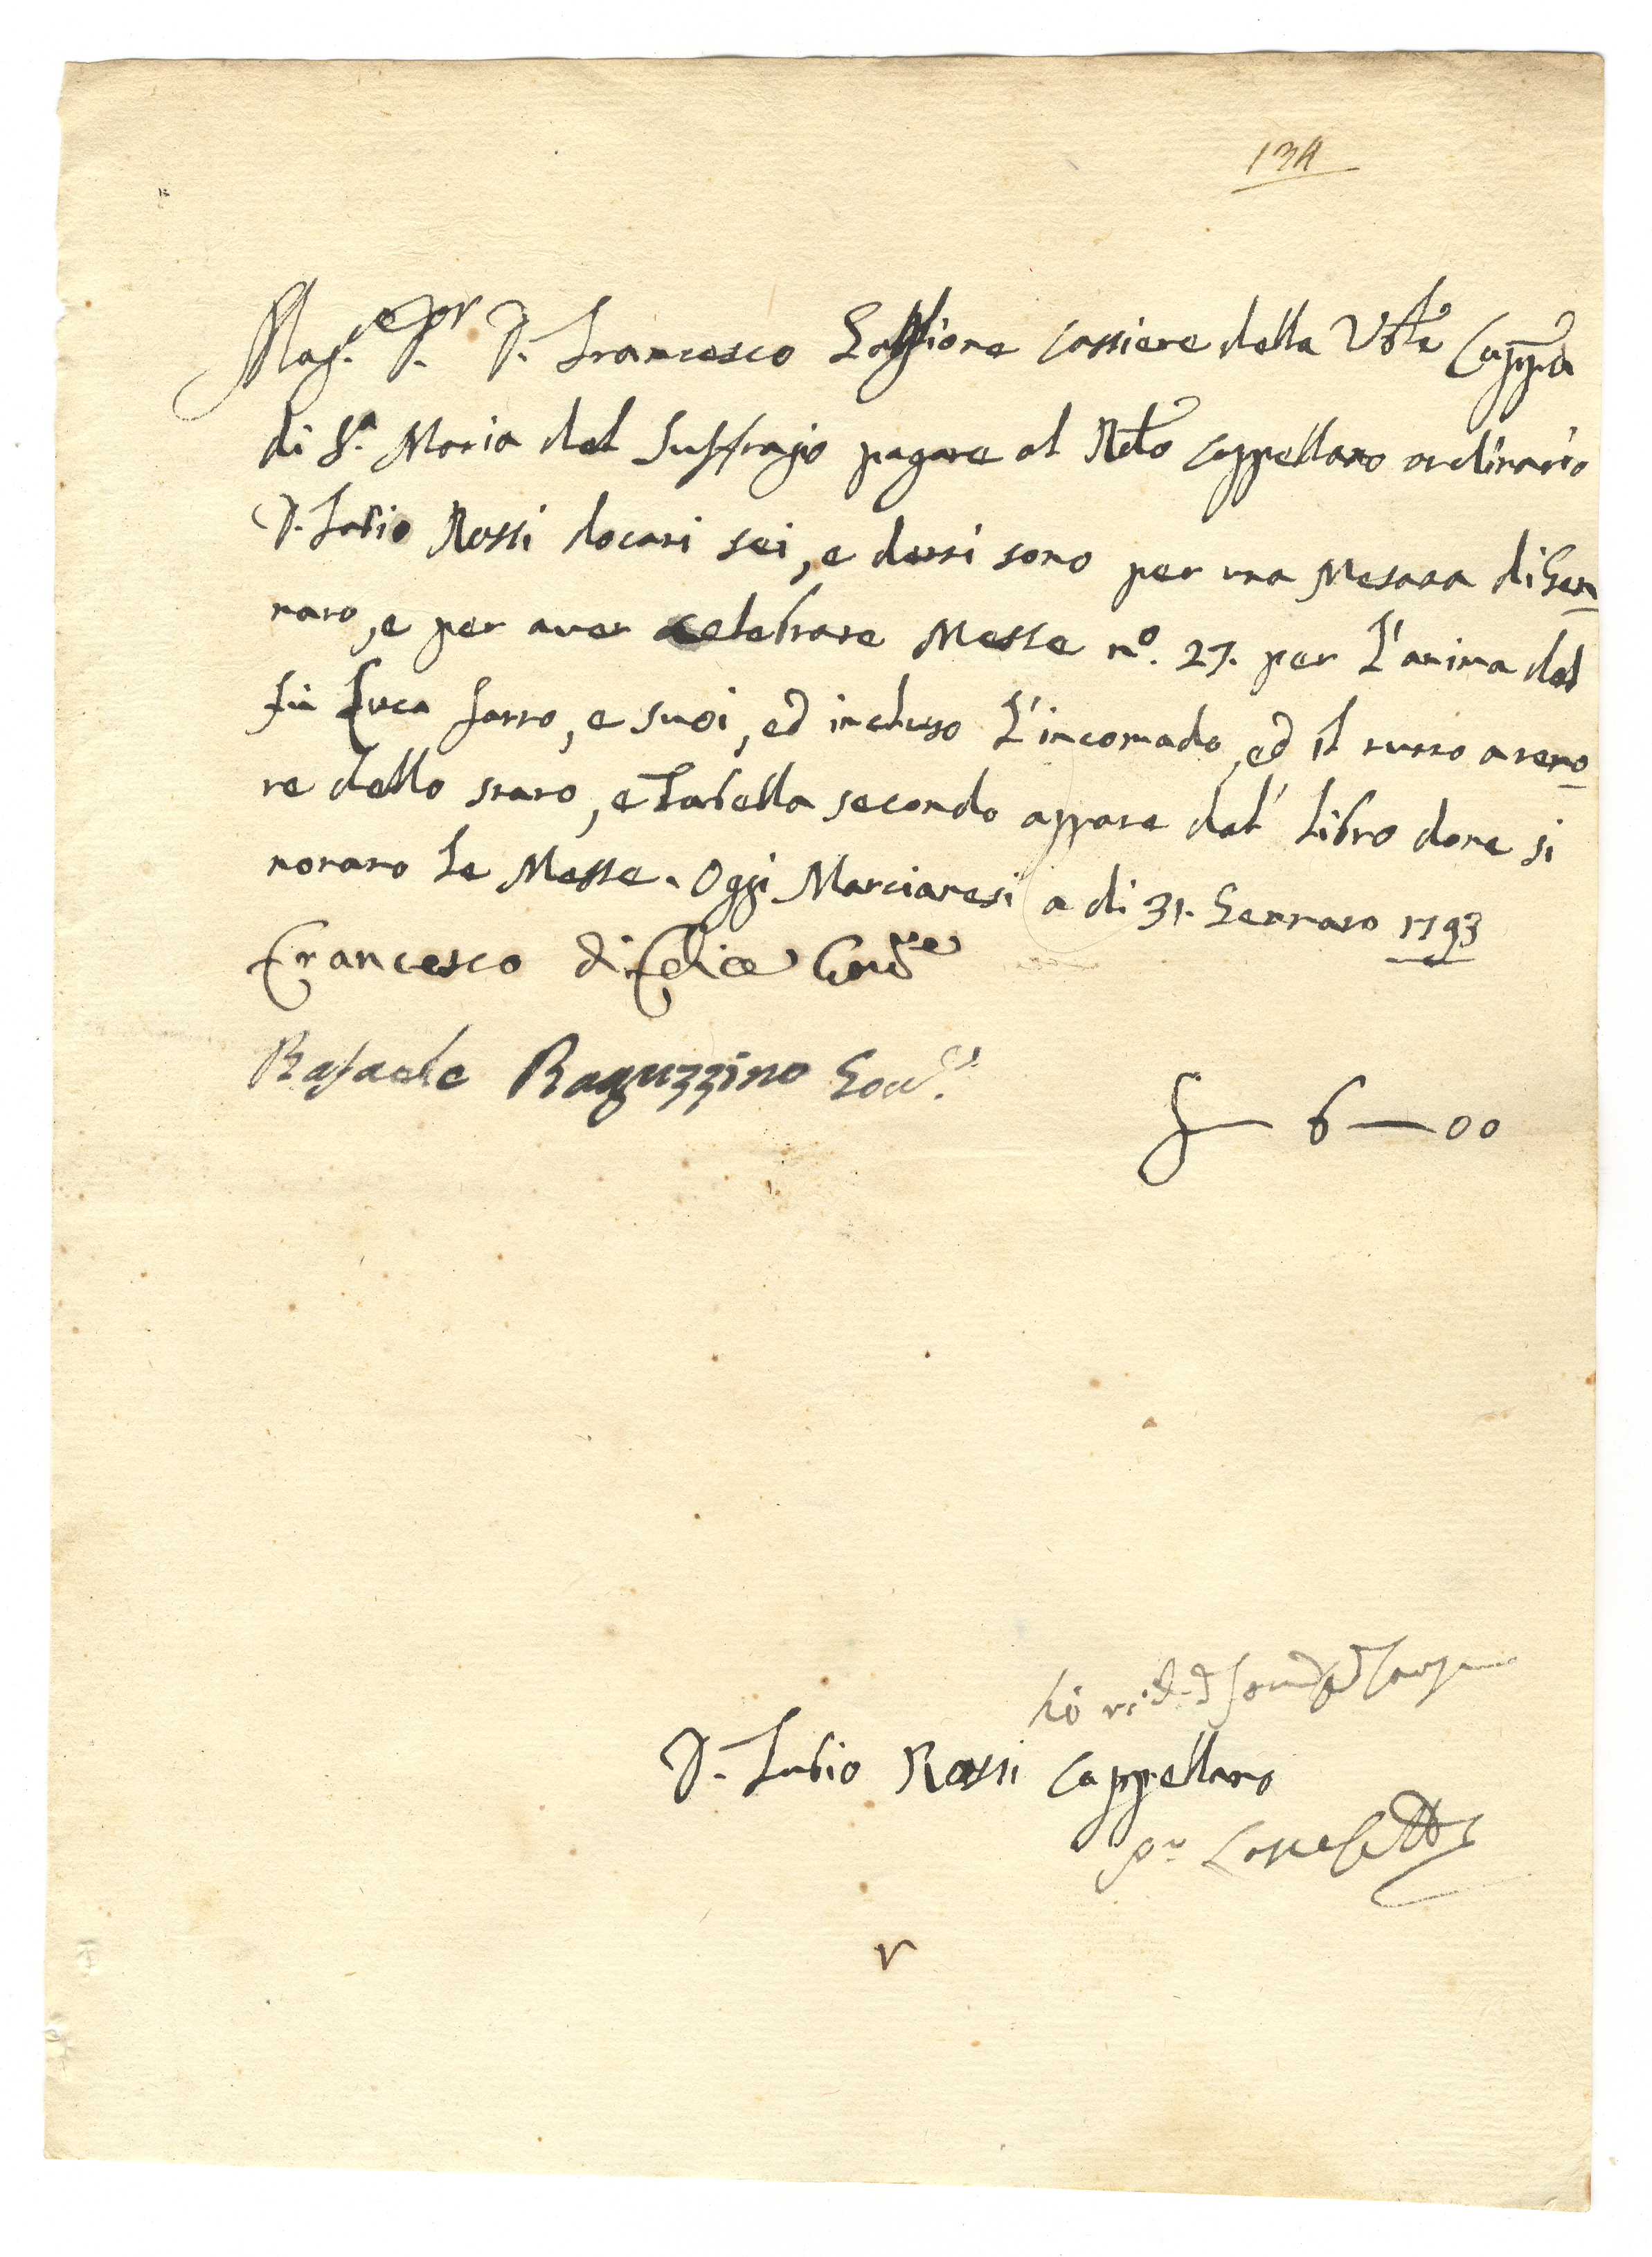 134
Mag.co Sig.r D. Francesco Gaglione Cassiere della V.ble Capp.a
di S.a Maria del Suffragio pagare al R.do Cappellano ordinario
D. Fabio Rossi docati sei, e detti sono per una Mesata di Gen
naro, e per aver celebrate Messe n.o 27. per l'anima del
fù Luca Farro, e suoi, ed incluso l'incomodo, ed il tutto a teno
re dello stato, e Tabella secondo appare dal libro dove si
notano le Messe. Oggi Marcianesi a di 31. Gennaro 1793
Francesco di Felice
Rafaele Raguzzino
6 — 00
D. Fabio Rossi Cappellano
v